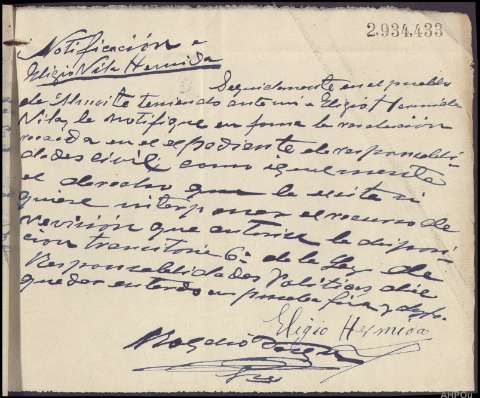 2.934.433
Notificación a
Eligio Nila Hermida
Seguidamente en el pueblo
de teniendo ante mi a Eligio Hermida
Nila, le notifique en forma la resolución
recaida en el expediente de responsabili-
dades civil como igualmente
el derecho que le asiste si
quiere interponer el recurso de
revisión que autoriza la disposi-
cion transitoria 6ª de la Ley de
Responsabilidades Politicas, dice
quedar enterado en prueba firma y doy fe.
Eligio Hermida
AHPOu